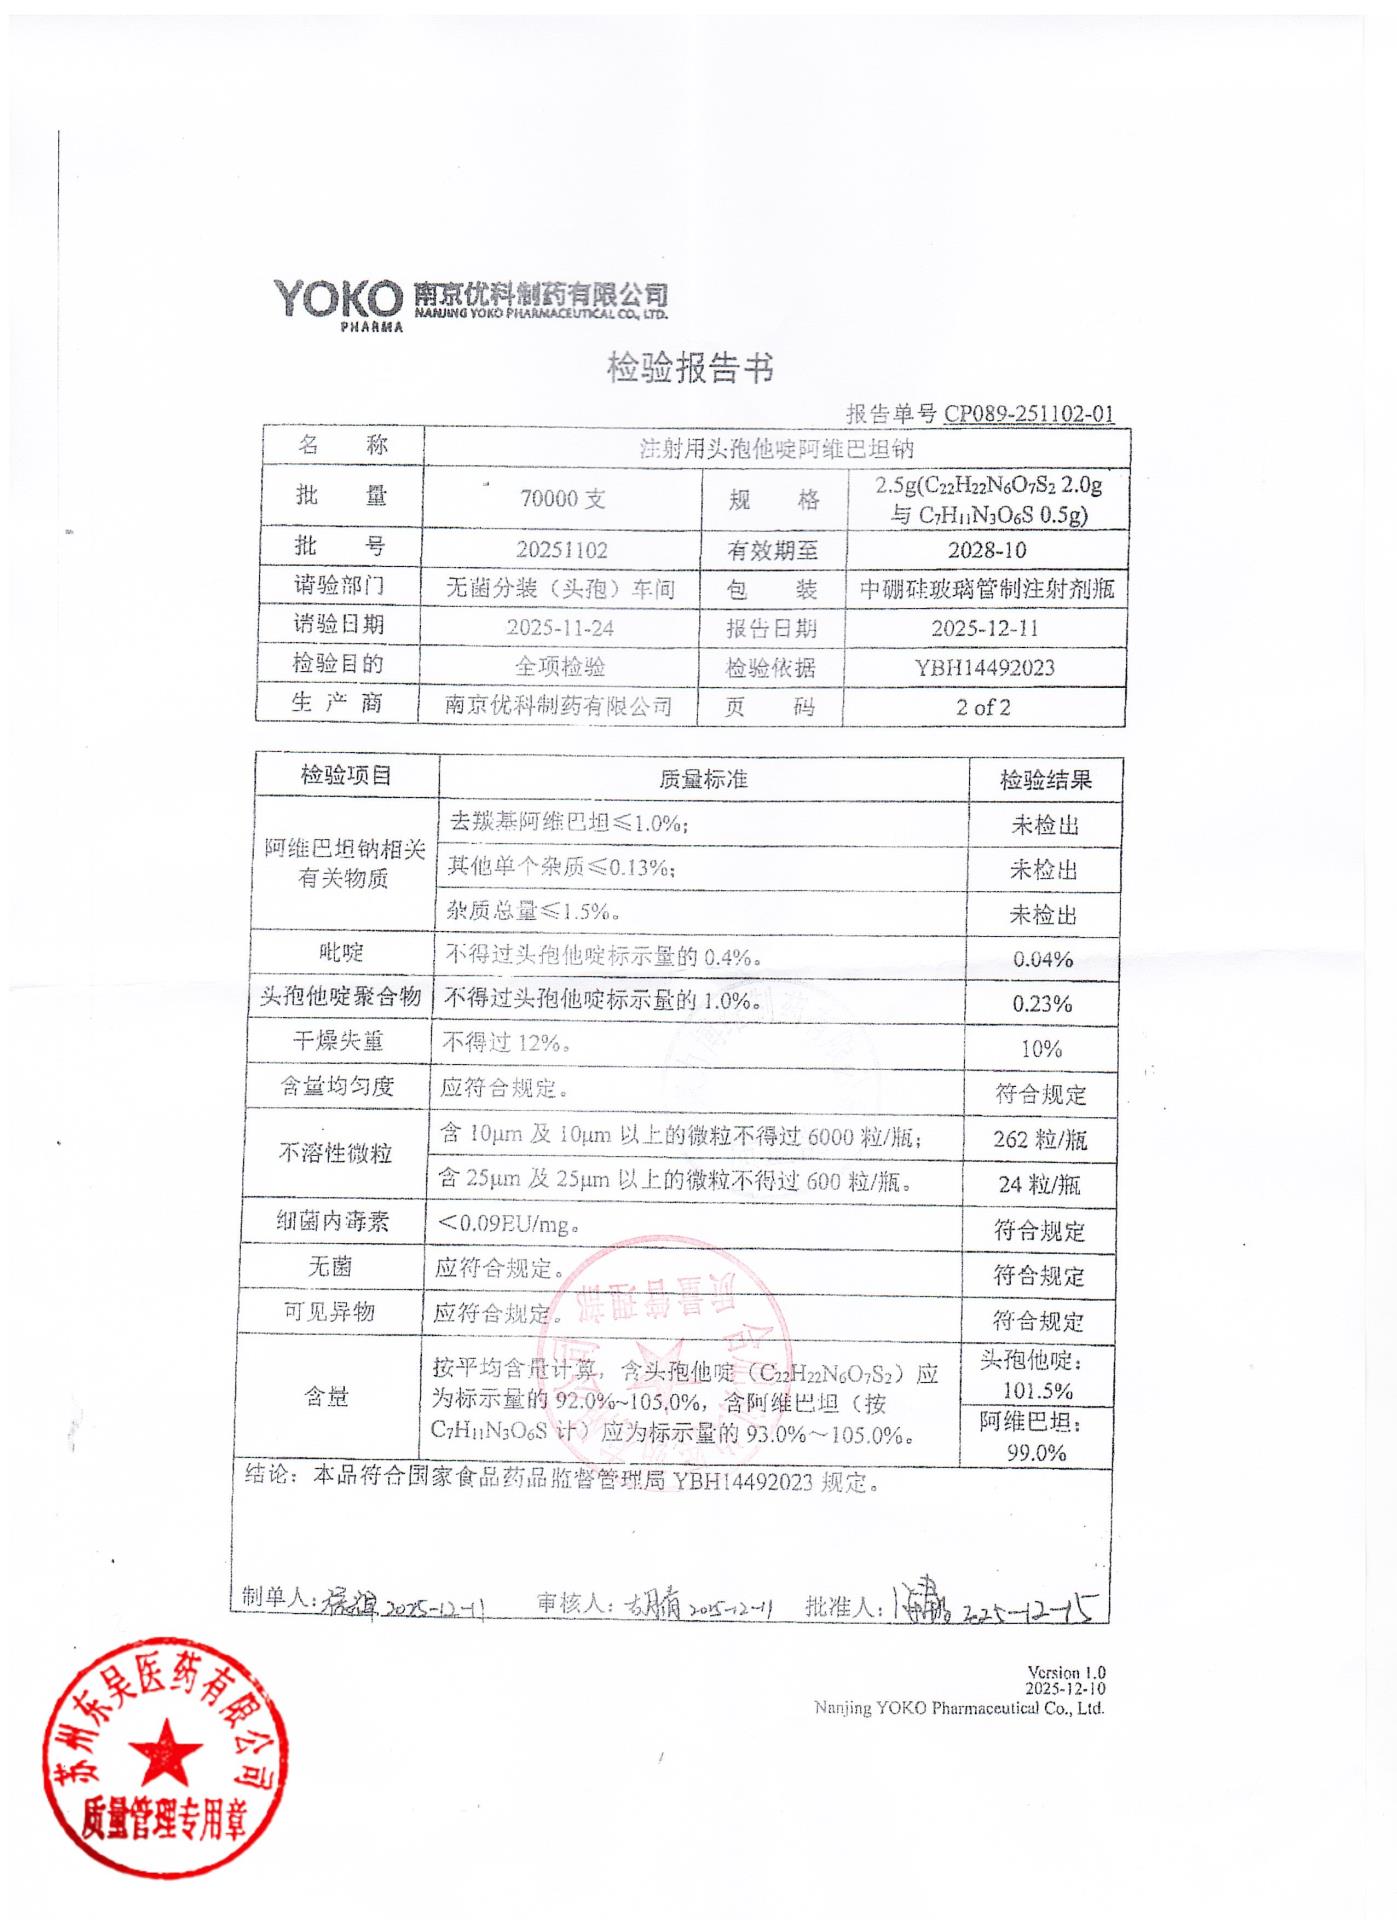 YOKO 南京优科制药有限公司
PHARMA NANJING YOKO PHARMACEUTICAL CO., LTD.
检验报告书
报告单号 CP089-251102-01
名 称 注射用头孢他啶阿维巴坦钠
批 量 70000 支 规 格 2.5g(C₂₂H₂₂N₆O₇S₂ 2.0g
与 C₇H₁₁N₃O₆S 0.5g)
批 号 20251102 有效期至 2028-10
请验部门 无菌分装（头孢）车间 包 装 中硼硅玻璃管制注射剂瓶
请验日期 2025-11-24 报告日期 2025-12-11
检验目的 全项检验 检验依据 YBH14492023
生 产 商 南京优科制药有限公司 页 码 2 of 2
检验项目 质量标准 检验结果
阿维巴坦钠相关
有关物质
去羰基阿维巴坦≤1.0%; 未检出
其他单个杂质≤0.13%; 未检出
杂质总量≤1.5%。 未检出
吡啶 不得过头孢他啶标示量的 0.4%。 0.04%
头孢他啶聚合物 不得过头孢他啶标示量的 1.0%。 0.23%
干燥失重 不得过 12%。 10%
含量均匀度 应符合规定。 符合规定
不溶性微粒
含 10μm 及 10μm 以上的微粒不得过 6000 粒/瓶; 262 粒/瓶
含 25μm 及 25μm 以上的微粒不得过 600 粒/瓶。 24 粒/瓶
细菌内毒素 <0.09EU/mg。 符合规定
无菌 应符合规定。 符合规定
可见异物 应符合规定。 符合规定
含量
按平均含量计算，含头孢他啶（C₂₂H₂₂N₆O₇S₂）应
为标示量的 92.0%~105.0%，含阿维巴坦（按
C₇H₁₁N₃O₆S 计）应为标示量的 93.0%～105.0%。
头孢他啶:
101.5%
阿维巴坦:
99.0%
质量管理部
结论：本品符合国家食品药品监督管理局 YBH14492023 规定。
制单人: 2025-12-11 审核人: 2025-12-11 批准人: 2025-12-15
Version 1.0
2025-12-10
Nanjing YOKO Pharmaceutical Co., Ltd.
苏州东吴医药有限公司
质量管理专用章